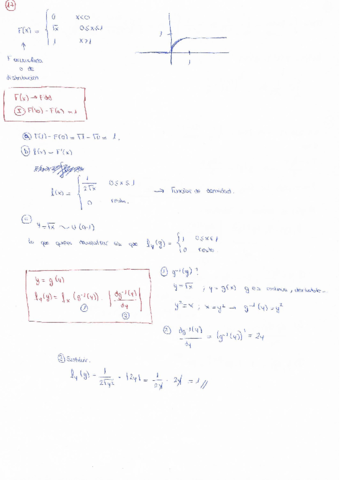 F(x) = { 0 x≤0
√x 0≤x≤1
1 x>1
1
1
↑
F acumulada
o de
distribución
F(x) → F(b)
F(b) - F(a) = 1
a) F(1) - F(0) = √1 - √0 = 1.
b) f(x) = F'(x)
f(x) = { 1/2√x 0≤x≤1 → función de densidad.
0 resto.
y = √x ~ U (0,1)
lo que quiero demostrar es que f_y(y) = { 1 0≤x≤1
0 resto
y = g(x)
f_y(y) = f_x (g⁻¹(y)) | dg⁻¹(y)/dy |
① ②
① g⁻¹(y)?
y = √x ; y = g(x) g es continua, derivable.
y² = x ; x = y² → g⁻¹(y) = y²
② dg⁻¹(y)/dy = (g⁻¹(y))' = 2y
③ Sustituir.
f_y(y) = 1/2√y² · |2y| = 1/2y · 2y = 1 //